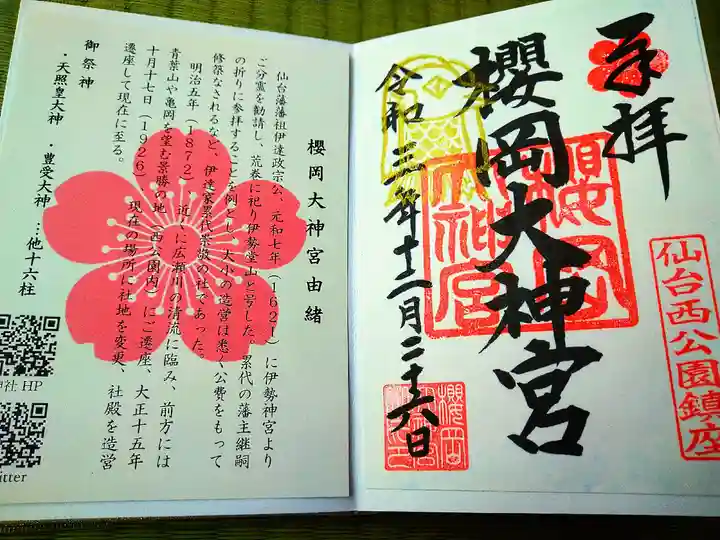 奉拝
仙台西公園鎮座
櫻岡大神宮
櫻岡大神宮
令和三年十二月二十六日
櫻岡大神宮由緒
仙台藩藩祖伊達政宗公、元和七年(1621)に伊勢神宮より
ご分霊を勧請し、荒巻に祀り伊勢堂山と号した。累代の藩主継嗣
の折りに参拝することを例とし、大小の造営は悉く公費をもって
修築なされるなど、伊達家累代崇敬の社であった。
明治五年(1872)、近くに広瀬川の清流に臨み、前方には
青葉山や亀岡を望む景勝の地(西公園内)にご遷座、大正十五年
十月十七日(1926)、現在の場所に社地を変更、社殿を造営
し遷座して現在に至る。
御祭神
・天照皇大神 ・豊受大神 …他十六柱
神社 HP
itter